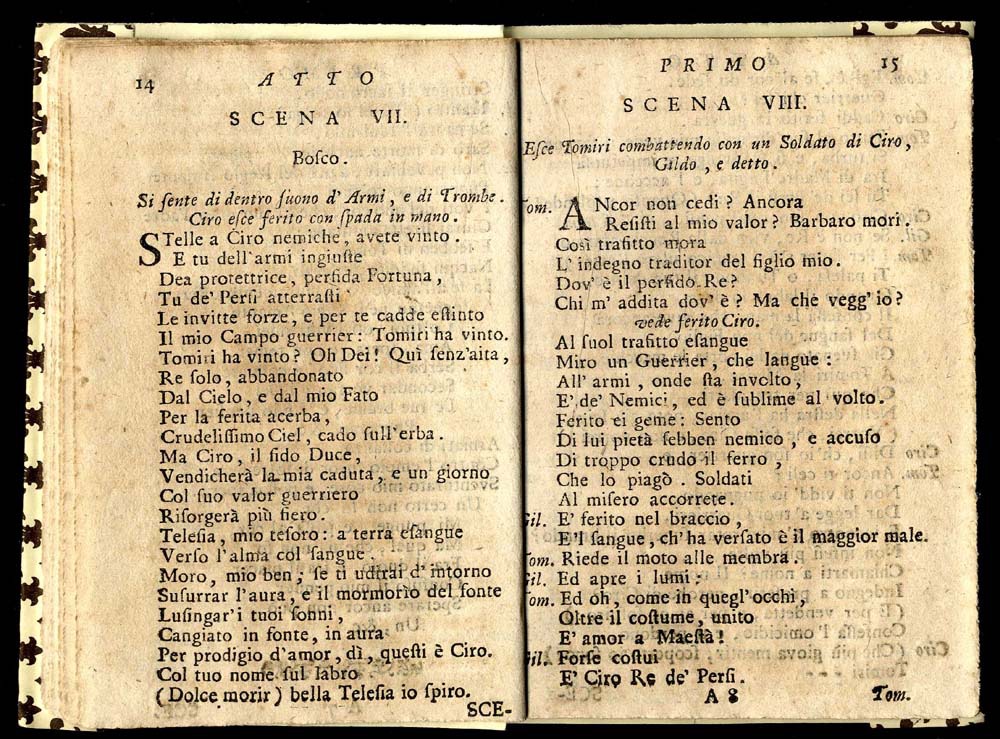 14
ATTO
SCENA VII.
Boſco.
Si ſente di dentro ſuono d' Armi, e di Trombe.
Ciro eſce ferito con ſpada in mano.
STelle a Ciro nemiche, avete vinto.
E tu dell'armi ingiuſte
Dea protettrice, perfida Fortuna,
Tu de' Perſi atterraſti
Le invitte forze, e per te cadde eſtinto
Il mio Campo guerrier: Tomiri ha vinto.
Tomiri ha vinto? Oh Dei! Quì ſenz'aita,
Re ſolo, abbandonato
Dal Cielo, e dal mio Fato
Per la ferita acerba,
Crudeliſſimo Ciel, cado ſull'erba.
Ma Ciro, il fido Duce,
Vendicherà la mia caduta, e un giorno
Col ſuo valor guerriero
Riſorgerà più fiero.
Teleſia, mio teſoro: a terra eſangue
Verſo l'alma col ſangue.
Moro, mio ben; ſe ti udrai d' intorno
Suſurrar l'aura, e il mormorio del fonte
Luſingar'i tuoi ſonni,
Cangiato in fonte, in aura
Per prodigio d'amor, dì, queſti è Ciro.
Col tuo nome ſul labro
(Dolce morir) bella Teleſia io ſpiro.
SCE-
PRIMO
15
SCENA VIII.
Eſce Tomiri combattendo con un Soldato di Ciro,
Gildo, e detto.
Tom. ANcor non cedi? Ancora
Reſiſti al mio valor? Barbaro mori.
Così trafitto mora
L' indegno traditor del figlio mio.
Dov' è il perfido Re?
Chi m' addita dov' è? Ma che vegg' io?
vede ferito Ciro.
Al ſuol trafitto eſangue
Miro un Guerrier, che langue:
All' armi, onde ſta involto,
E' de' Nemici, ed è ſublime al volto.
Ferito ei geme: Sento
Di lui pietà ſebben nemico, e accuſo
Di troppo crudo il ferro,
Che lo piagò. Soldati
Al miſero accorrete.
Gil. E' ferito nel braccio,
E'l ſangue, ch'ha verſato è il maggior male.
Tom. Riede il moto alle membra.
Gil. Ed apre i lumi;
Tom. Ed oh, come in quegl'occhi,
Oltre il coſtume, unito
E' amor a Maeſtà!
Gil. Forſe coſtui
E' Ciro Re de' Perſi.
A 8
Tom.